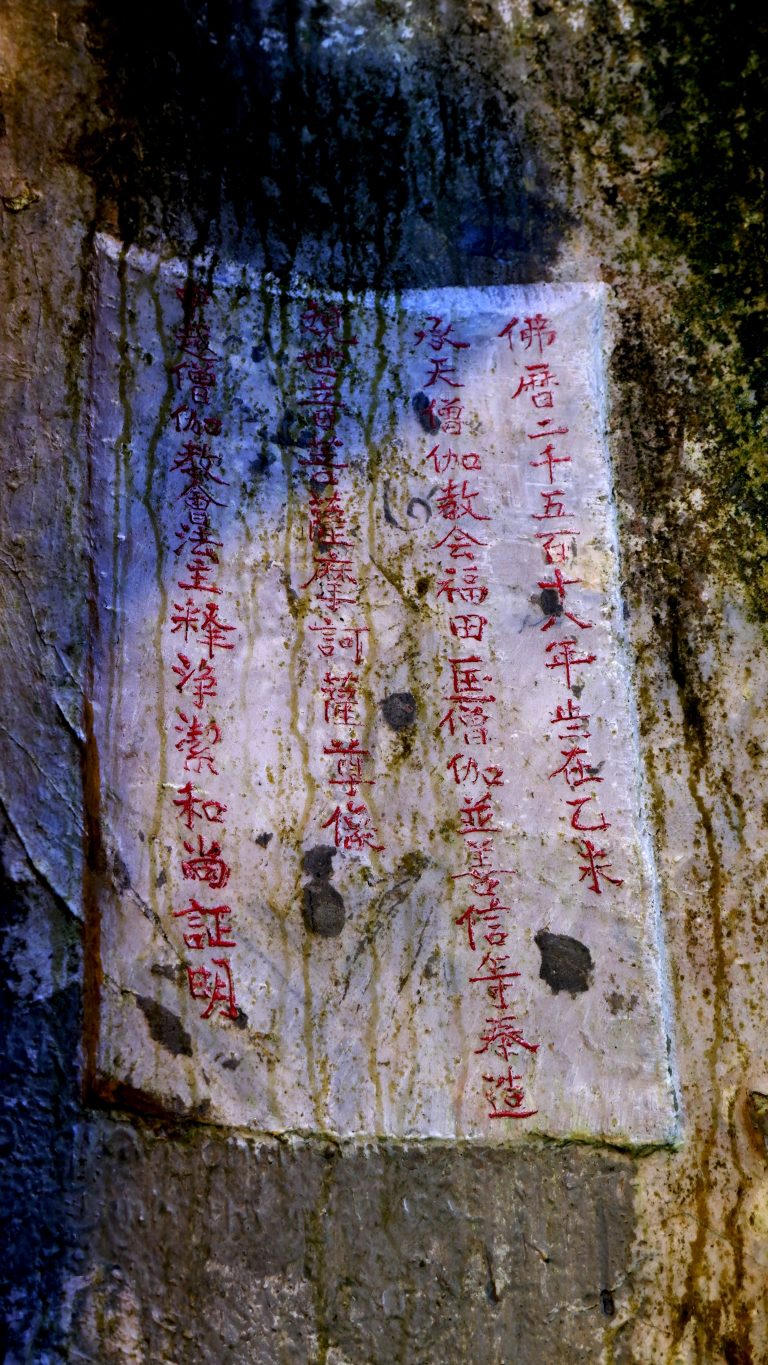 佛暦二千五百十八年亗在乙未
承天僧伽教会福田匡僧伽並善信等奉造
観世音菩薩摩訶薩尊像
中越僧伽教會法主释浄潔和尚証明